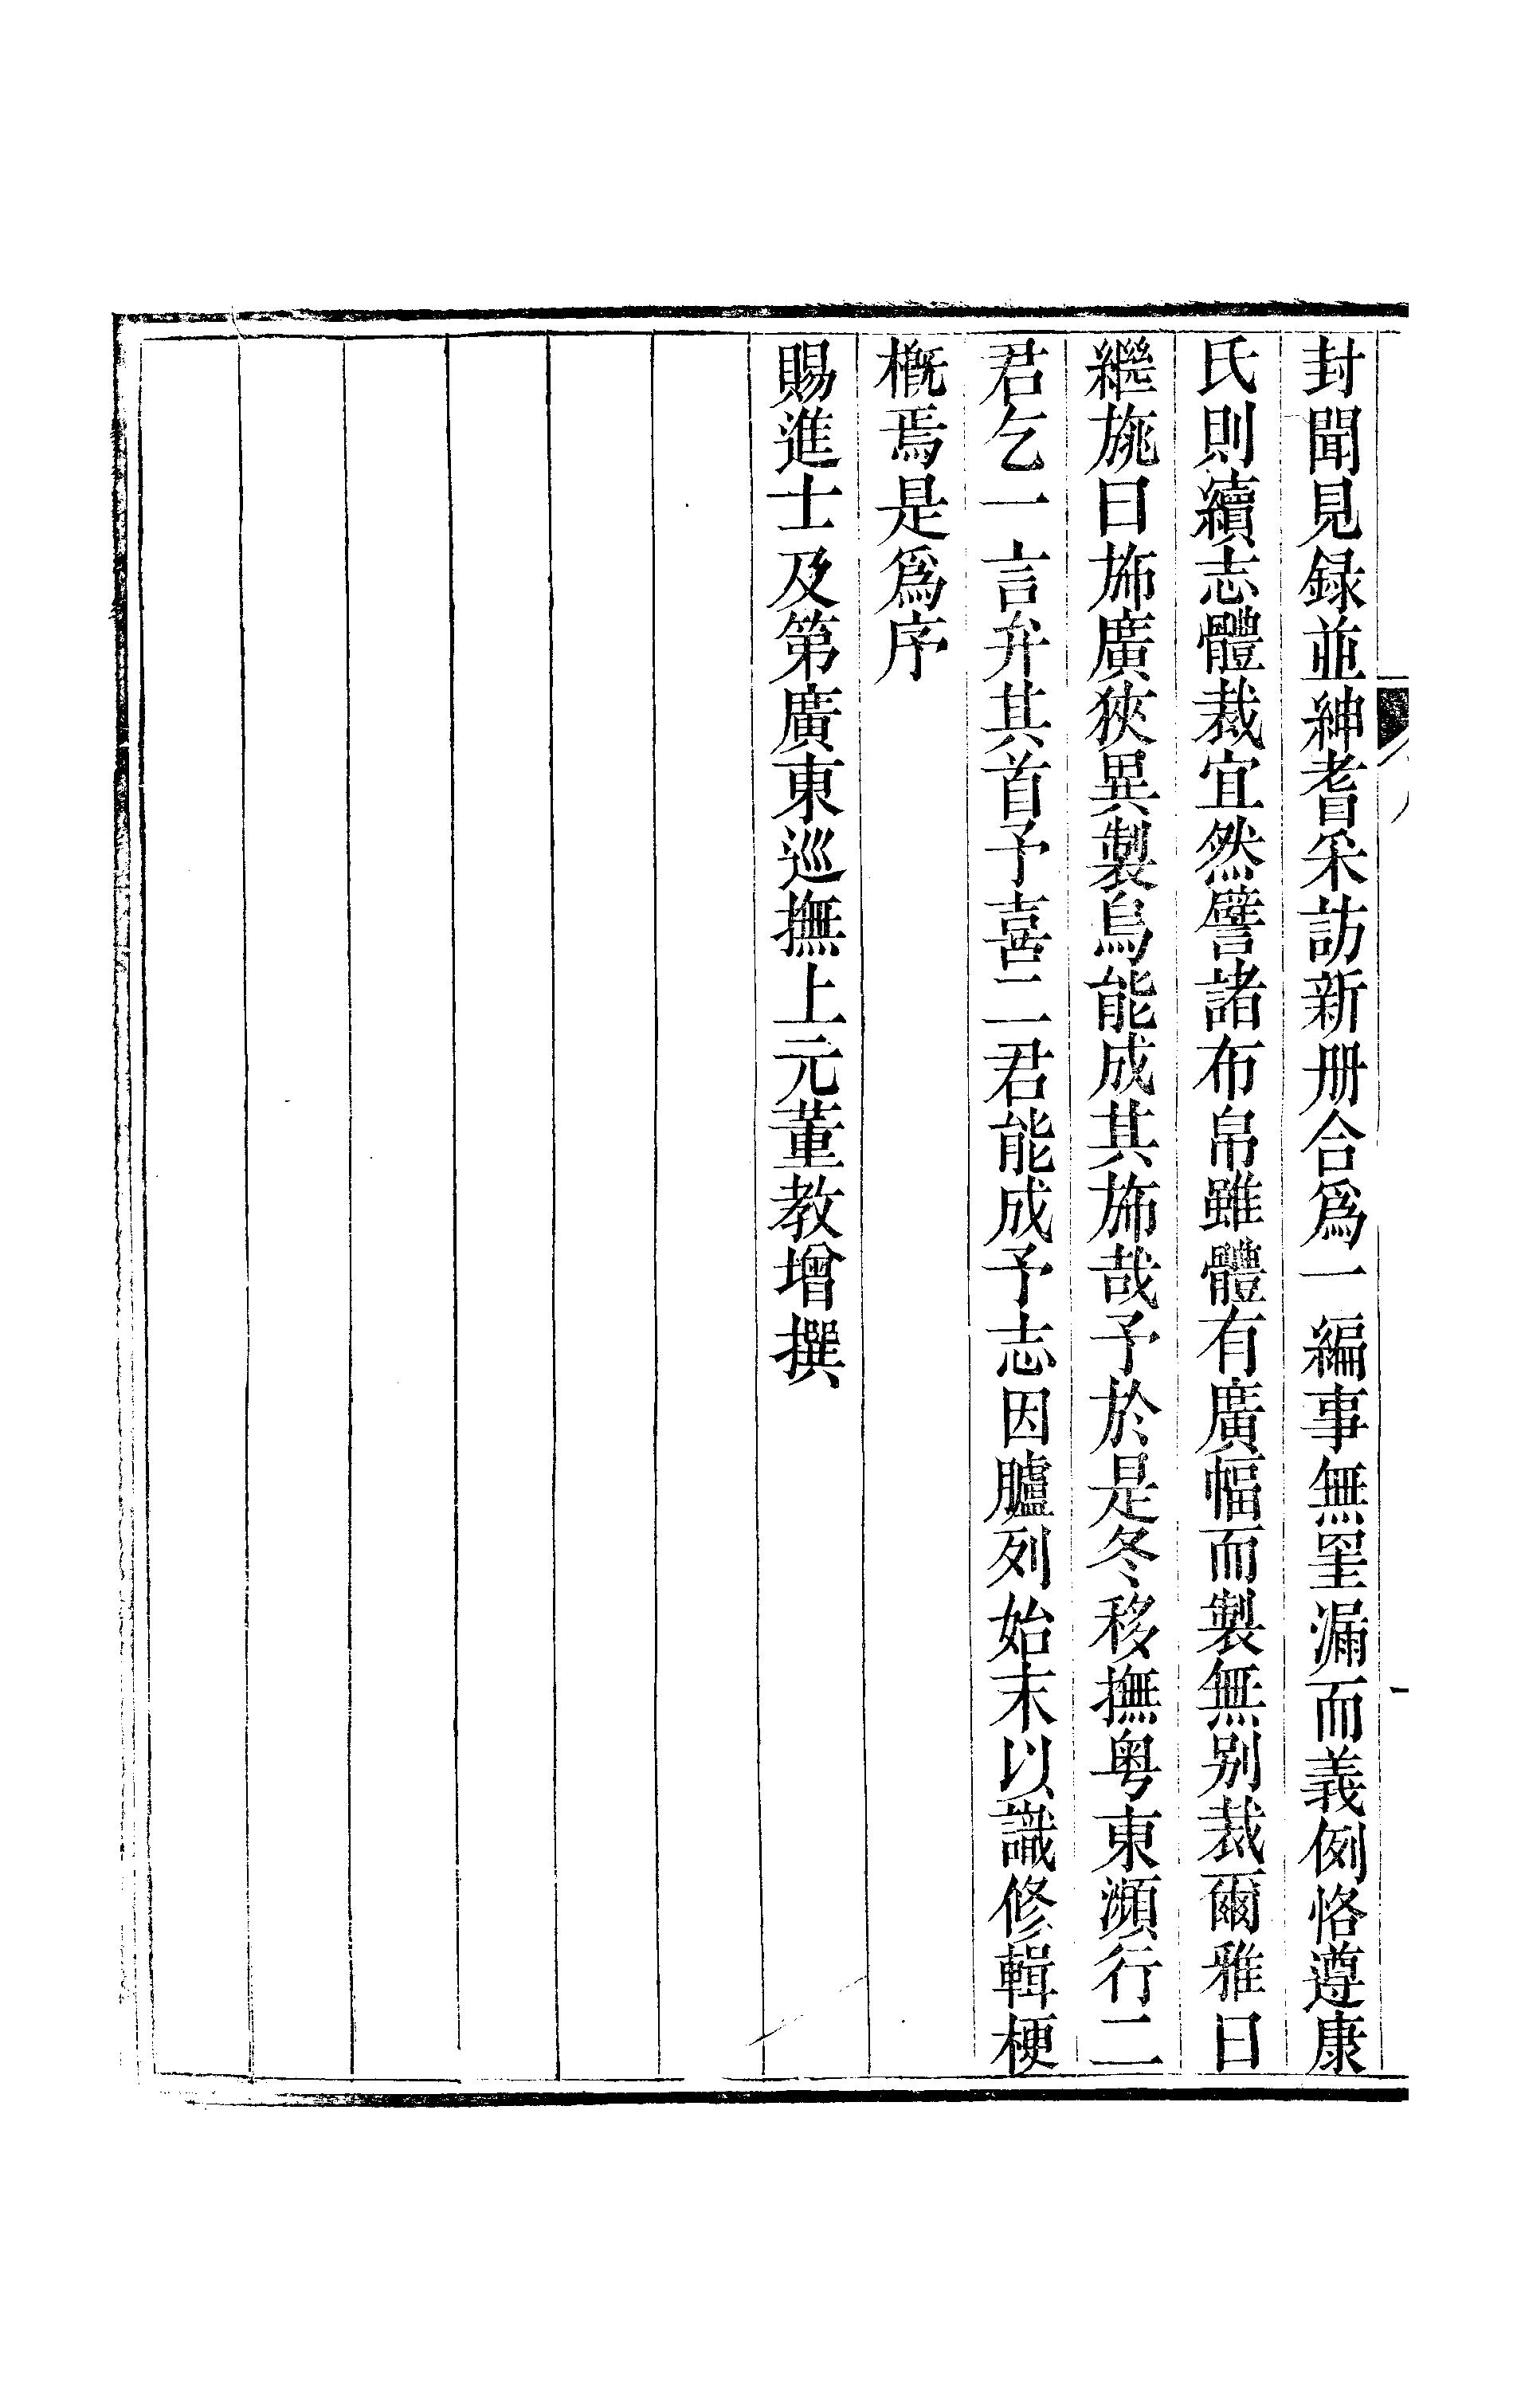 封聞見録並紳耆采訪新册合爲一編事無罣漏而義例恪遵康
氏則續志體裁宜然譬諸布帛雖體有廣幅而製無别裁爾雅曰
繼旐曰斾廣狹異製烏能成其斾哉予於是冬移撫粤東瀕行二
君乞一言弁其首予喜二君能成予志因臚列始末以識修輯梗
槪焉是爲序
賜進士及第廣東巡撫上元董教增撰